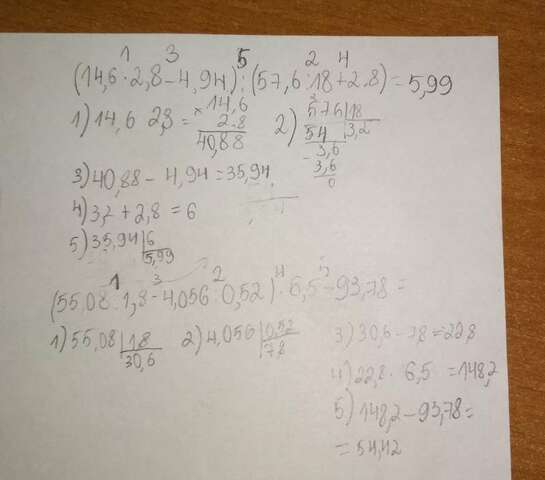 1 3 5 2 4
(14,6 · 2,8 - 4,94) : (57,6 : 18 + 2.8) = 5,99
1) 14,6 2,8 = × 14,6
2.8
40,88
2) 576 | 18
54 3,2
3,6
- 3,6
0
3) 40,88 - 4,94 = 35,94
4) 3,2 + 2,8 = 6
5) 35,94 | 6
5,99
1 3 2 4 5
(55,08 : 1,8 - 4,056 : 0,52) · 6,5 - 93,78 =
1) 55,08 | 1,8
30,6
2) 4,056 | 0,52
7,8
3) 30,6 - 7,8 = 22,8
4) 22,8 · 6,5 = 148,2
5) 148,2 - 93,78 =
= 54,42